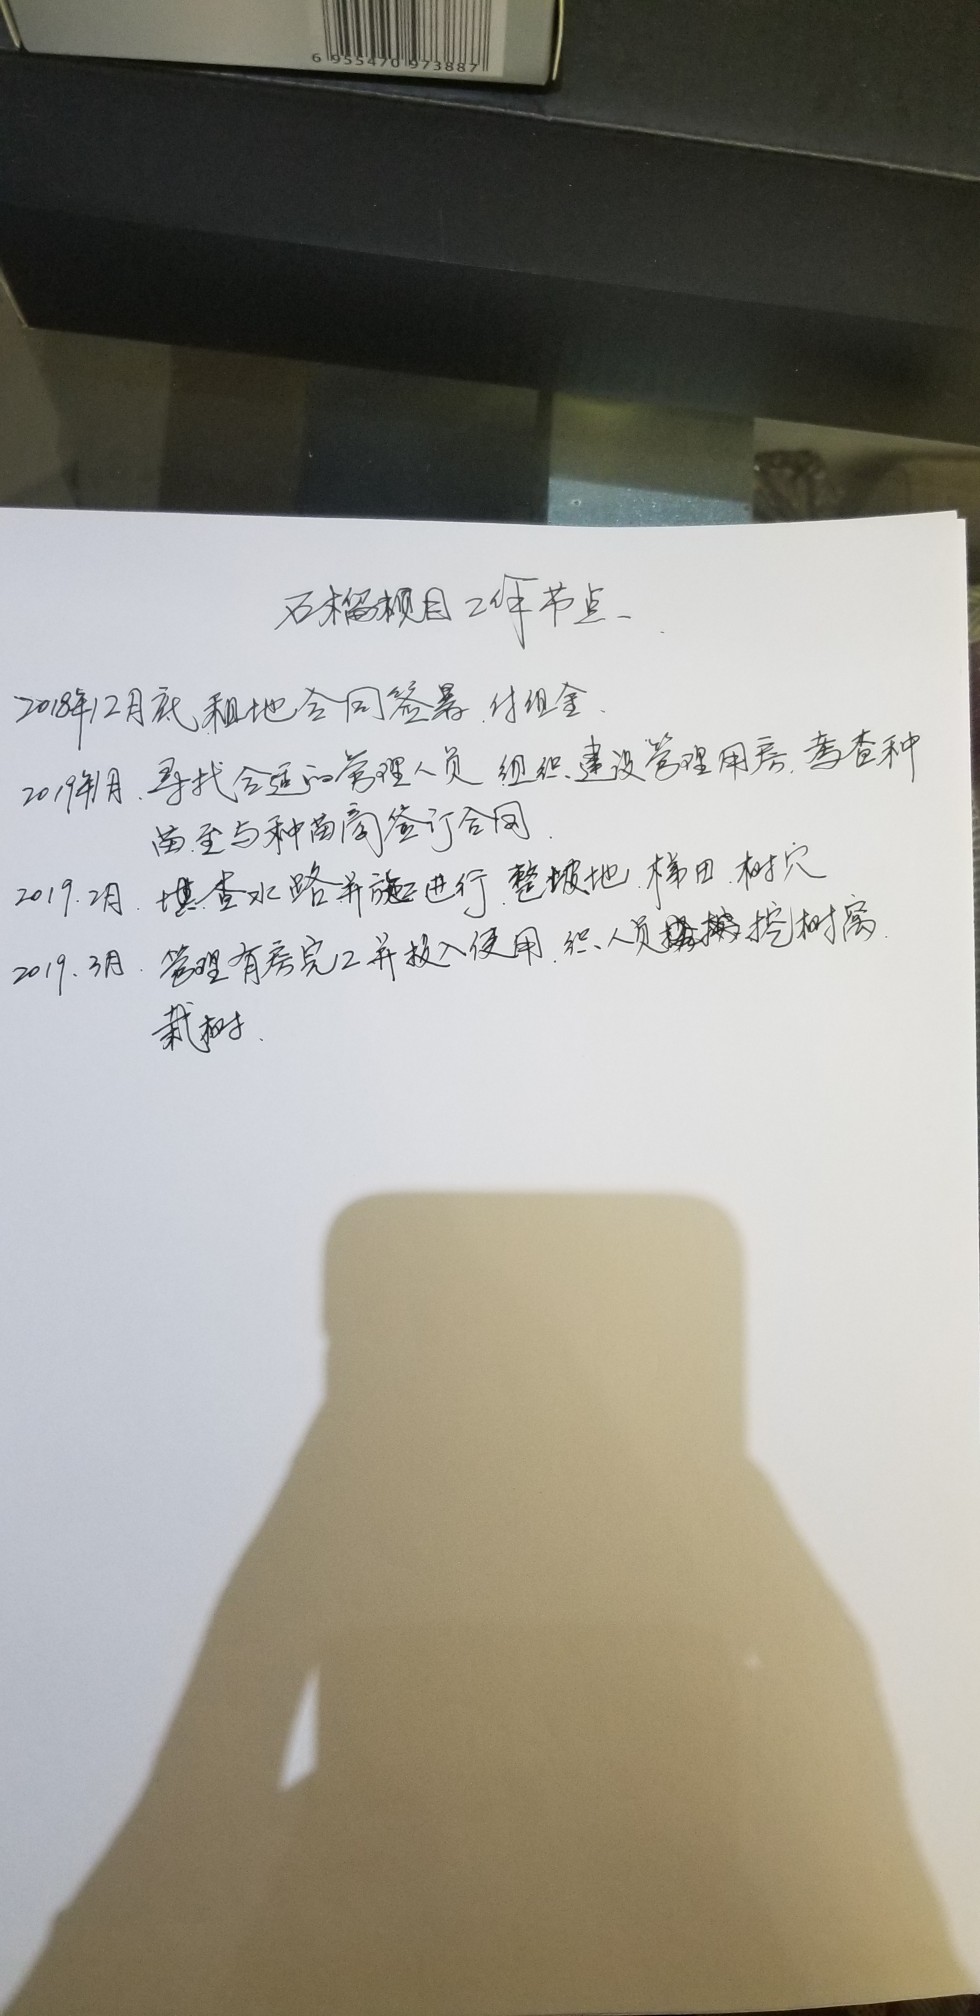 6 955470 973887
石榴项目工作节点
2018年12月底.租地合同签署.付租金.
2019年1月.寻找合适的管理人员 组织.建设管理用房.考查种
苗.至与种苗商签订合同.
2019.2月. 查水路并施工进行.整坡地.梯田.树穴
2019.3月. 管理有房完工并投入使用.组织.人员挖树窝.
栽树.